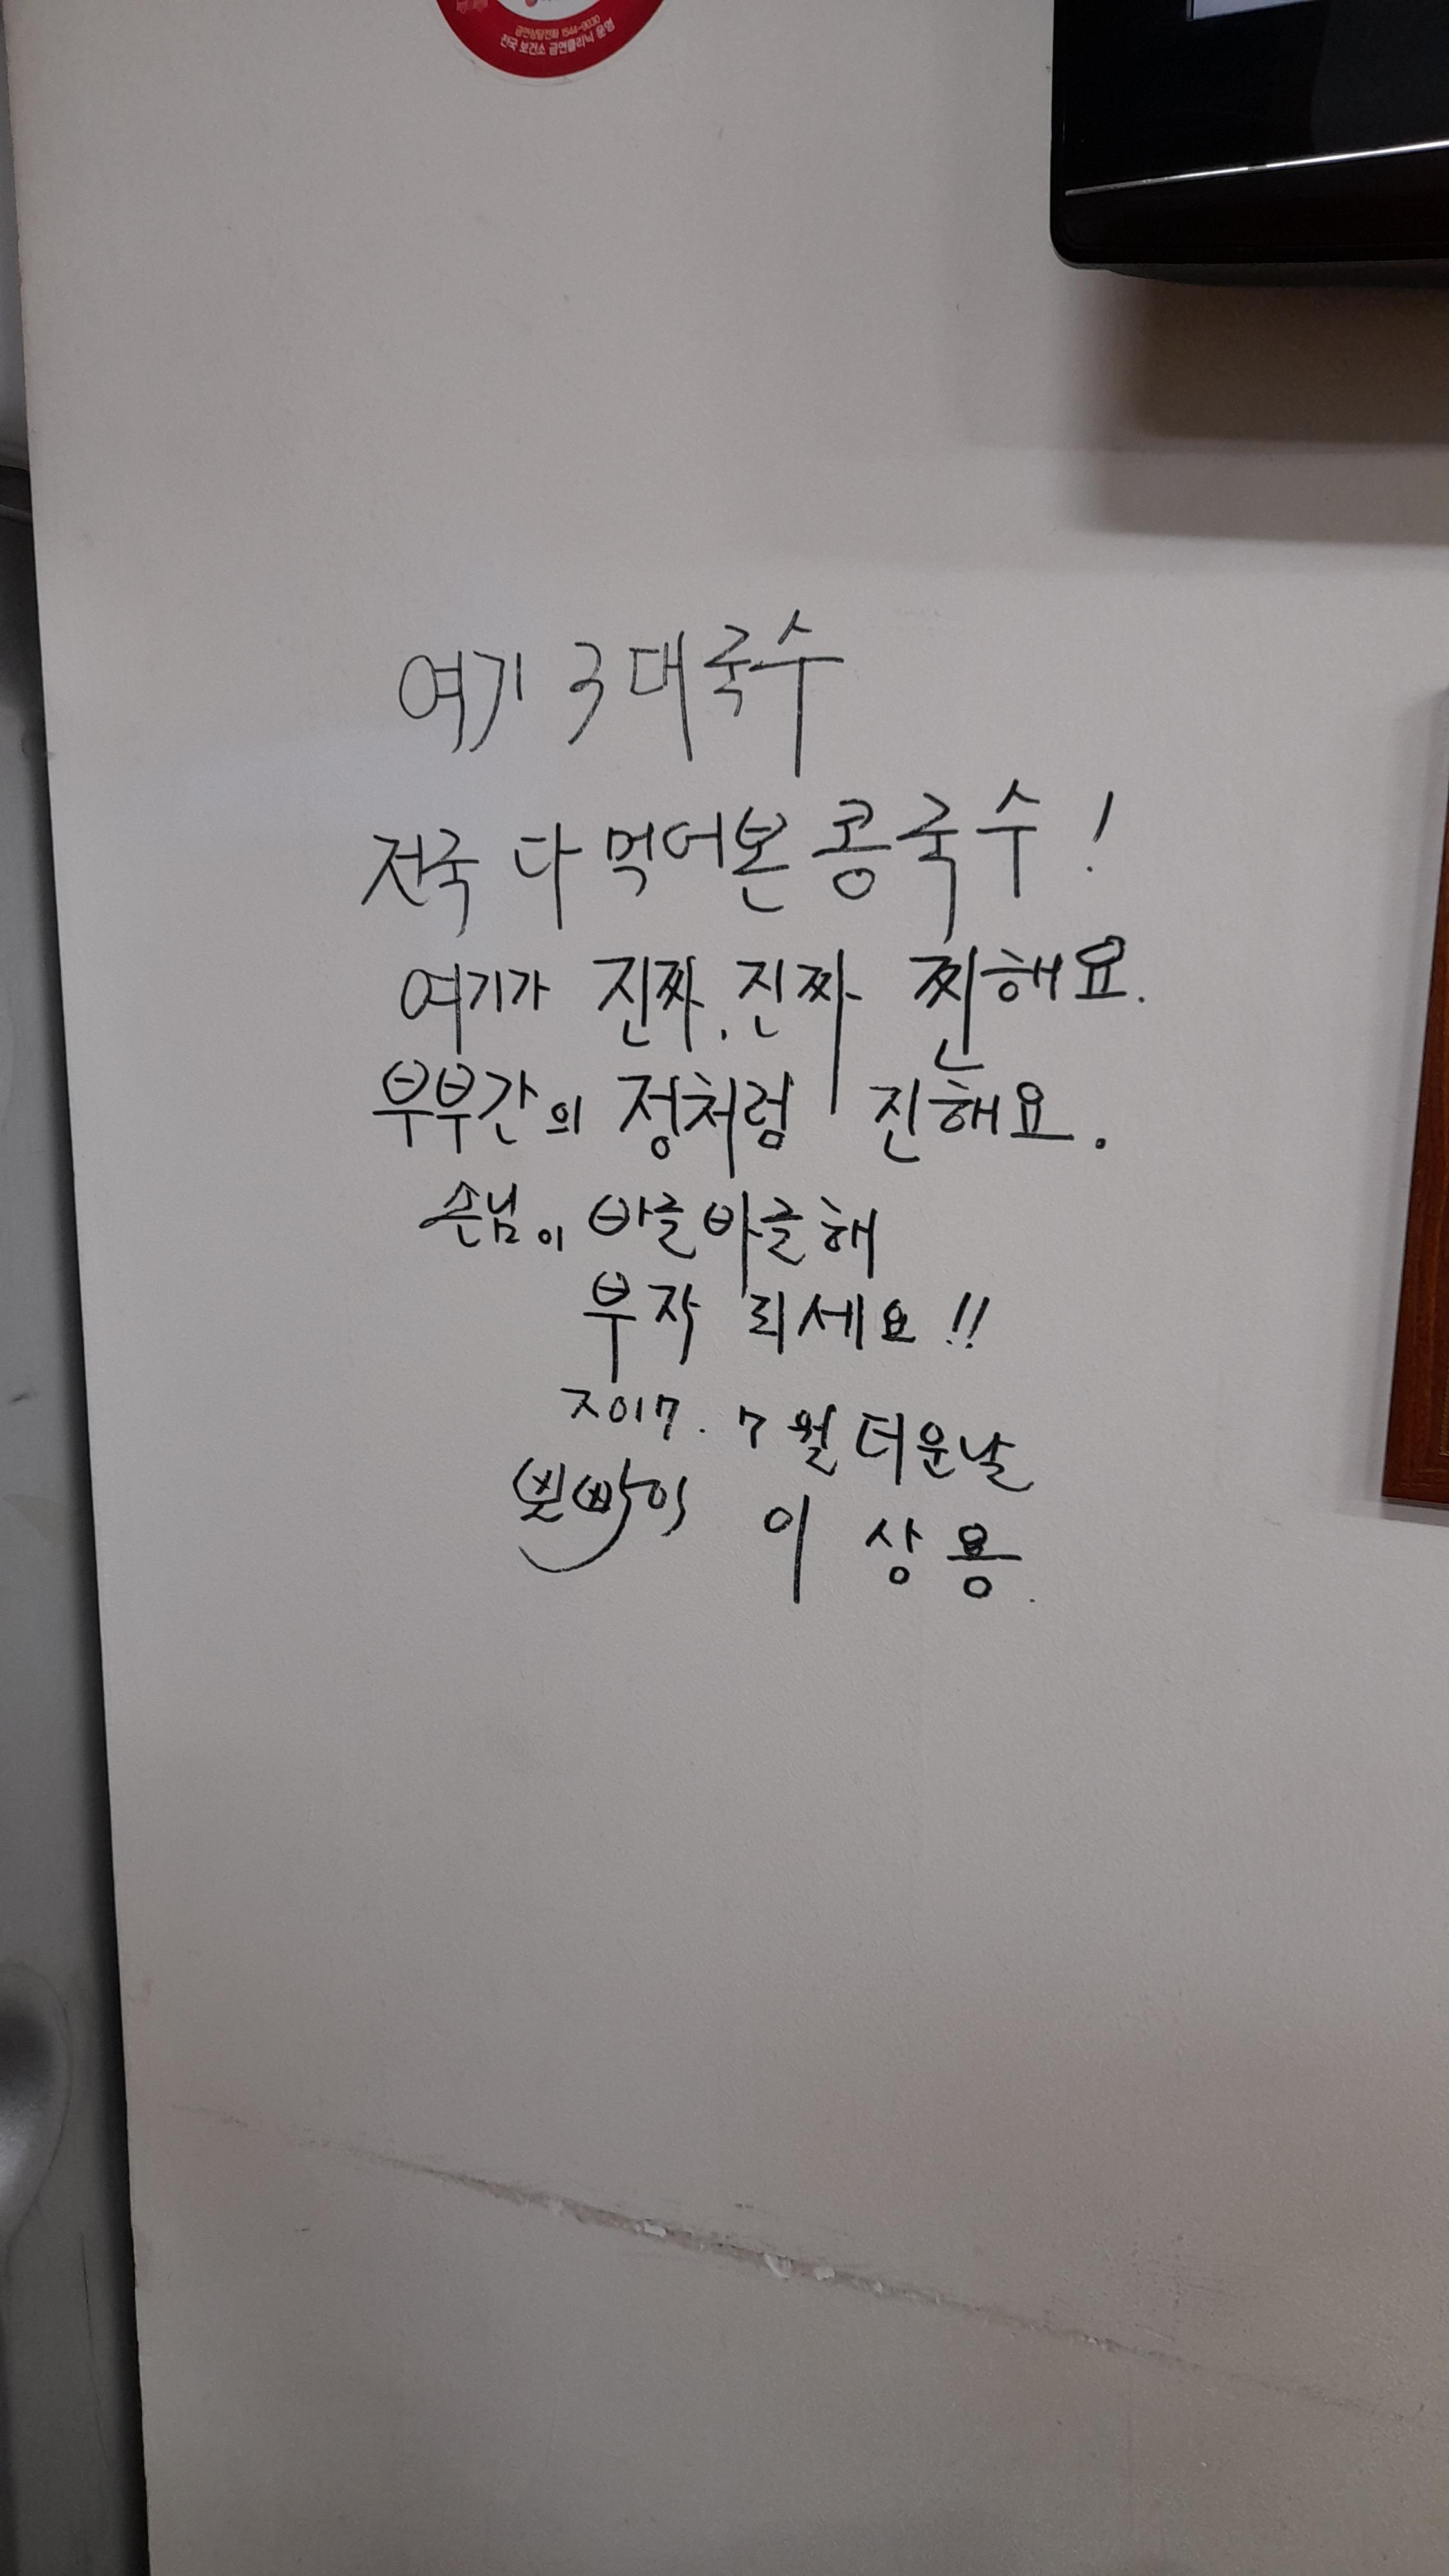 금연상담전화 1544-9030
전국 보건소 금연클리닉 운영
여기 3대국수
전국 다 먹어본 콩국수!
여기가 진짜, 진짜 찐해요.
부부간의 정처럼 진해요.
손님이 바글바글해
부자 되세요!!
2017. 7월 더운날
뽀빠이 이상용.